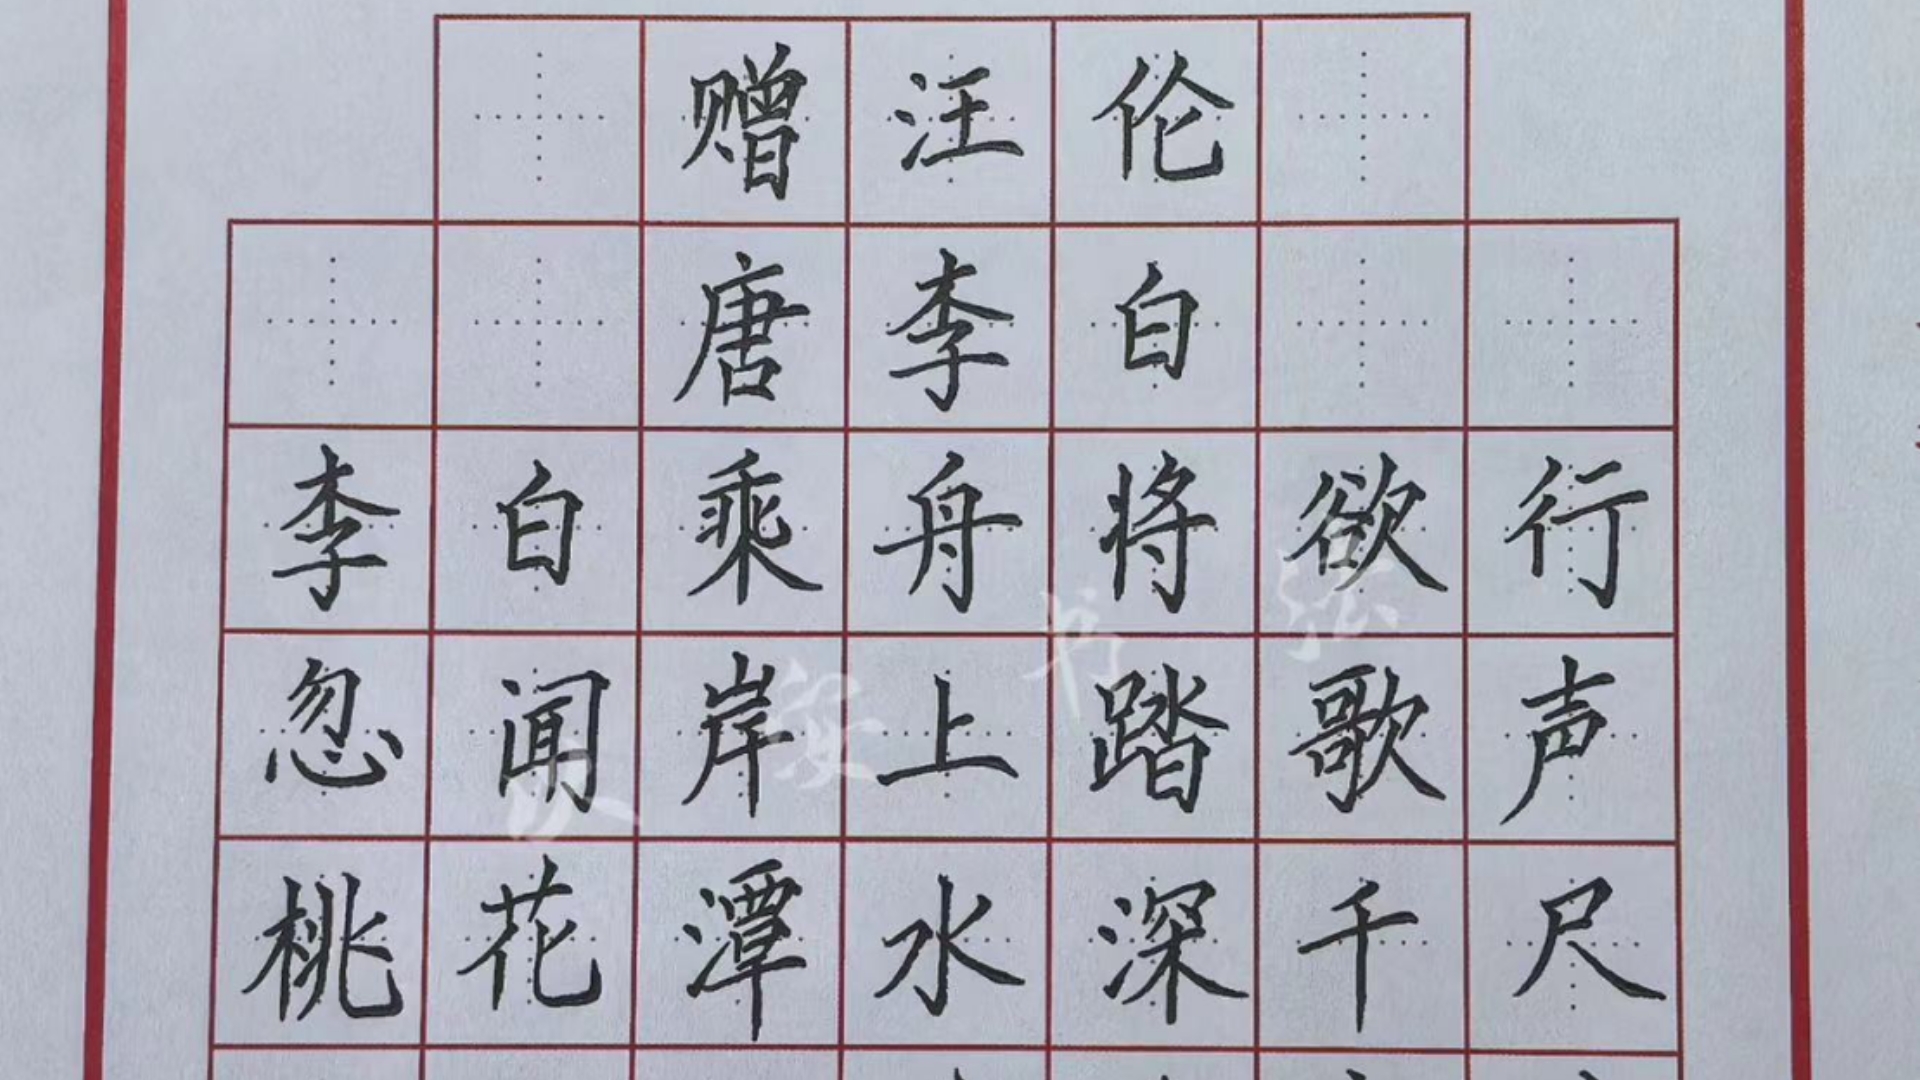 赠汪伦
唐李白
李白乘舟将欲行
忽闻岸上踏歌声
桃花潭水深千尺